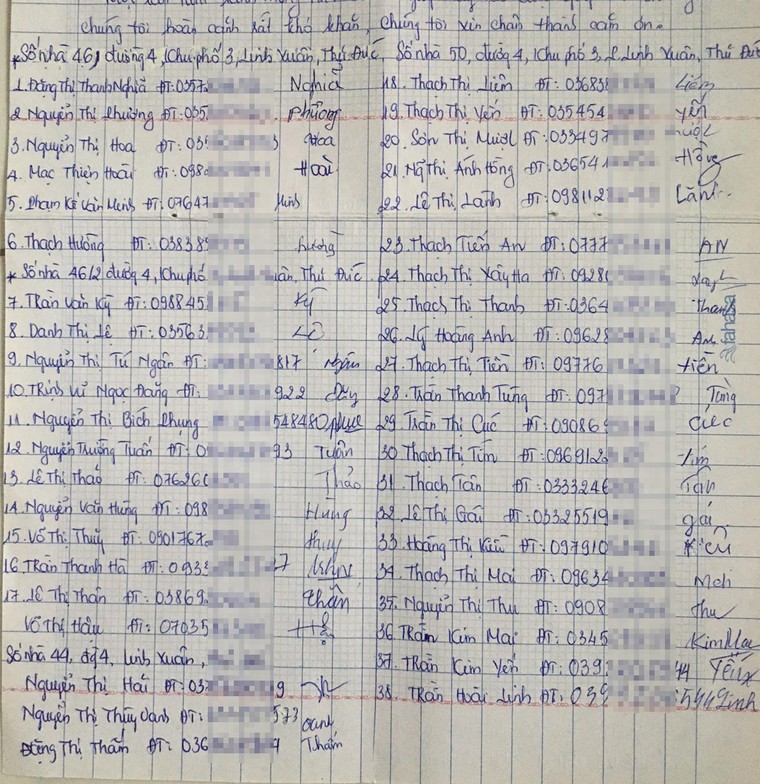 chúng tôi hoàn cảnh rất khó khăn, chúng tôi xin chân thành cảm ơn.
* Số nhà 46, đường 4, khu phố 3, Linh Xuân, Thủ Đức.
1. Đồng Thị Thanh Nghĩa ĐT: 0357 Nghĩa
2. Nguyễn Thị Phương ĐT: 035 Phương
3. Nguyễn Thị Hoa ĐT: 035 3 Hoa
4. Mạc Thiên Hoài ĐT: 098 Hoài
5. Phạm Kế Văn Minh ĐT: 07647 Minh
6. Thạch Hường ĐT: 03838 Hường
* Số nhà 46/2 đường 4, khu phố Xuân, Thủ Đức.
7. Trần Văn Kỷ ĐT: 098845 Kỷ
8. Danh Thị Lệ ĐT: 03563 Lệ
9. Nguyễn Thị Tú Ngân ĐT: 817 Ngân
10. Trịnh Vũ Ngọc Đang ĐT: 922
11. Nguyễn Thị Bích Phụng ĐT: 548480
12. Nguyễn Trường Tuấn ĐT: 0 93 Tuấn
13. Lê Thị Thảo ĐT: 07626 Thảo
14. Nguyễn Văn Hùng ĐT: 098 Hùng
15. Võ Thị Thuý ĐT: 0901767 thuy
16. Trần Thanh Hà ĐT: 0933 7
17. Lê Thị Thần ĐT: 03869 thần
Võ Thị Hậu ĐT: 07035
Số nhà 44, đg 4, Linh Xuân,
Nguyễn Thị Hải ĐT: 03 9
Nguyễn Thị Thùy Oanh ĐT: 573 Oanh
Đặng Thị Thắm ĐT: 036 7 Thắm
Số nhà 50, đường 4, khu phố 3, P. Linh Xuân, Thủ Đức
18. Thạch Thị Liêm ĐT: 03683 Liêm
19. Thạch Thị Yến ĐT: 035454 yến
20. Sơn Thị Mượl ĐT: 033497
21. Ngô Thị Ánh Hồng ĐT: 03654 Hồng
22. Lê Thị Lành ĐT: 098112 Lành
23. Thạch Tiến An ĐT: 0777 AN
24. Thạch Thị Xây Ha ĐT: 0928
25. Thạch Thị Thanh ĐT: 0364 Thanh
26. Lý Hoàng Anh ĐT: 09628 Anh
27. Thạch Thị Tiên ĐT: 09776 tiên
28. Trần Thanh Tùng ĐT: 097 Tùng
29. Trần Thị Cúc ĐT: 09086 Cúc
30. Thạch Thị Tím ĐT: 096912 tím
31. Thạch Tân ĐT: 0333246 Tân
32. Lê Thị Gái ĐT: 03325519 gái
33. Hoàng Thị Kiều ĐT: 097910 Kiều
34. Thạch Thị Mai ĐT: 09634
35. Nguyễn Thị Thu ĐT: 0908 thu
36. Trần Kim Mai ĐT: 0345 Kim Mai
37. Trần Kim Yến ĐT: 039 44 Yến
38. Trần Hoài Linh ĐT: 039 544 Linh
fahasa